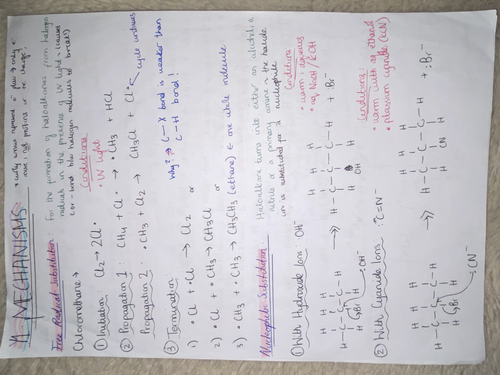 MECHANISMS
* curly arrows represent e⁻ flow → only e⁻
move, not protons or the charge!
Free Radical Substitution: For the formation of haloalkanes from halogen
radicals in the presence of UV light → causes
the halogen molecules to break!
Chloromethane →
Conditions
UV light
① Initiation: Cl₂ → 2Cl•
② Propagation 1: CH₄ + Cl• → •CH₃ + HCl
Propagation 2: •CH₃ + Cl₂ → CH₃Cl + Cl•
cycle continues
③ Termination
Why? → C—X bond is weaker than
C—H bond!
1) •Cl + •Cl → Cl₂ or
2) •Cl + •CH₃ → CH₃Cl or
3) •CH₃ + •CH₃ → CH₃CH₃ (ethane) ← one whole molecule
Nucleophilic Substitution: Haloalkane turns into either an alcohol, a
nitrile or a primary amine → the halide
ion is substituted for a nucleophile
① With Hydroxide Ions: OH⁻
Conditions
• warm + aqueous
• aq NaOH / KOH
H H H H
H—C—C—C—C—H
H H Br H
:OH⁻
→
H H H H
H—C—C—C—C—H
H H OH H
+ Br⁻
② With Cyanide Ions: :C≡N⁻
Conditions:
• warm with aq ethanol
• potassium cyanide (KCN)
H H H H
H—C—C—C—C—H
H H Br H
:CN⁻
→
H H H H
H—C—C—C—C—H
H H CN H
+ :Br⁻